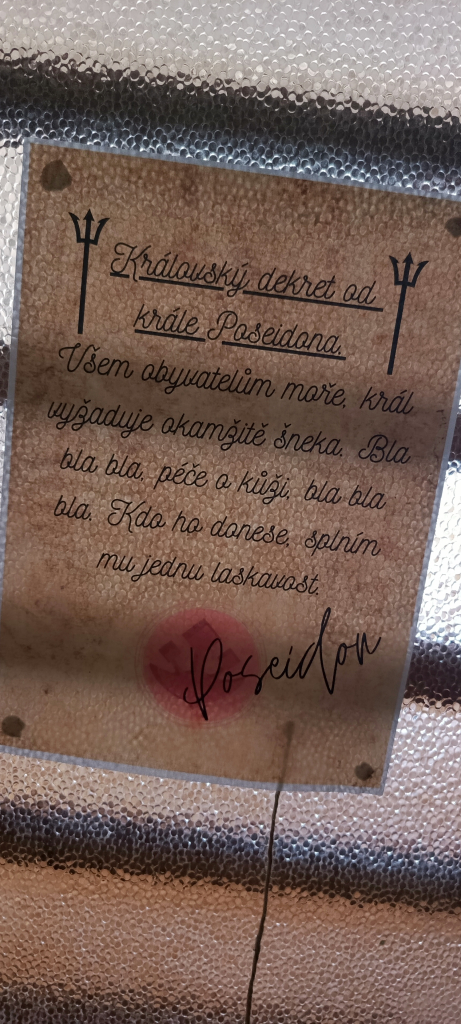 Královský dekret od
krále Poseidona.
Všem obyvatelům moře, král
vyžaduje okamžitě šneka. Bla
bla bla, péče o kůži, bla bla
bla. Kdo ho donese, splním
mu jednu laskavost.
Poseidon